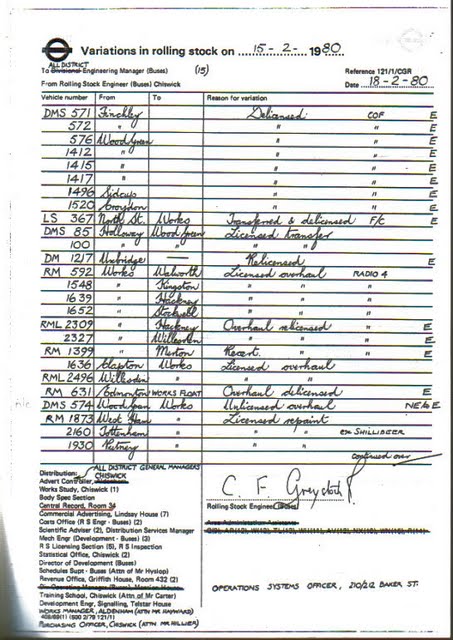 Variations in rolling stock on 15-2-1980
ALL DISTRICT
To Divisional Engineering Manager (Buses) (15) Reference 121/1/CGR
From Rolling Stock Engineer (Buses) Chiswick Date 18-2-80
Vehicle number From To Reason for variation
DMS 571 Finchley Delicensed COF E
572 " " " E
576 Wood Green " " E
1412 " " " E
1415 " " " E
1417 " " " E
1496 Sidcup " " E
1520 Croydon " " E
LS 367 North St. Works Transferred & delicensed F/C E
DMS 85 Holloway Wood Green Licensed transfer
100 " " " "
DM 1217 Uxbridge — Relicensed E
RM 592 Works Walworth Licensed overhaul RADIO 4
1548 " Kingston " " "
1639 " Hackney " " "
1652 " Stockwell " " "
RML 2309 " Hackney Overhaul relicensed " E
2327 " Willesden " " " E
RM 1399 " Merton Recert. " " E
1636 Clapton Works Licensed overhaul
RML 2496 Willesden " " "
RM 631 Edmonton WORKS FLOAT Overhaul delicensed E
DMS 574 Wood Green Works Unlicensed overhaul NE&E
RM 1873 West Ham " Licensed repaint
2160 Tottenham " " " ex SHILLIBEER
1930 Putney " " "
continued over
Distribution: ALL DISTRICT GENERAL MANAGERS
CHISWICK
Advert Controller, Aldenham
Works Study, Chiswick (1)
Body Spec Section
Central Record, Room 34
Commercial Advertising, Lindsay House (7)
Costs Office (R S Engr - Buses) (2)
Scientific Adviser (2), Distribution Services Manager
Mech Engr (Development) (Buses) (3)
RS Licensing Section (1), R S Inspection
Statistical Office, Chiswick (2)
Director of Development (Buses)
Schedules Supt - Buses (Attn of Mr Hyslop)
Revenue Office, Griffith House, Room 432 (2)
Training School, Chiswick (Attn of Mr Carter)
Development Engr, Signalling, Telstar House
WORKS MANAGER, ALDENHAM (ATTN MR HAYWARD)
PURCHASING OFFICER, CHISWICK (ATTN MR HILLIER)
C F Greystock
Rolling Stock Engineer (Buses)
Area Administration Assistants
OPERATIONS SYSTEMS OFFICER, 210/212 BAKER ST.